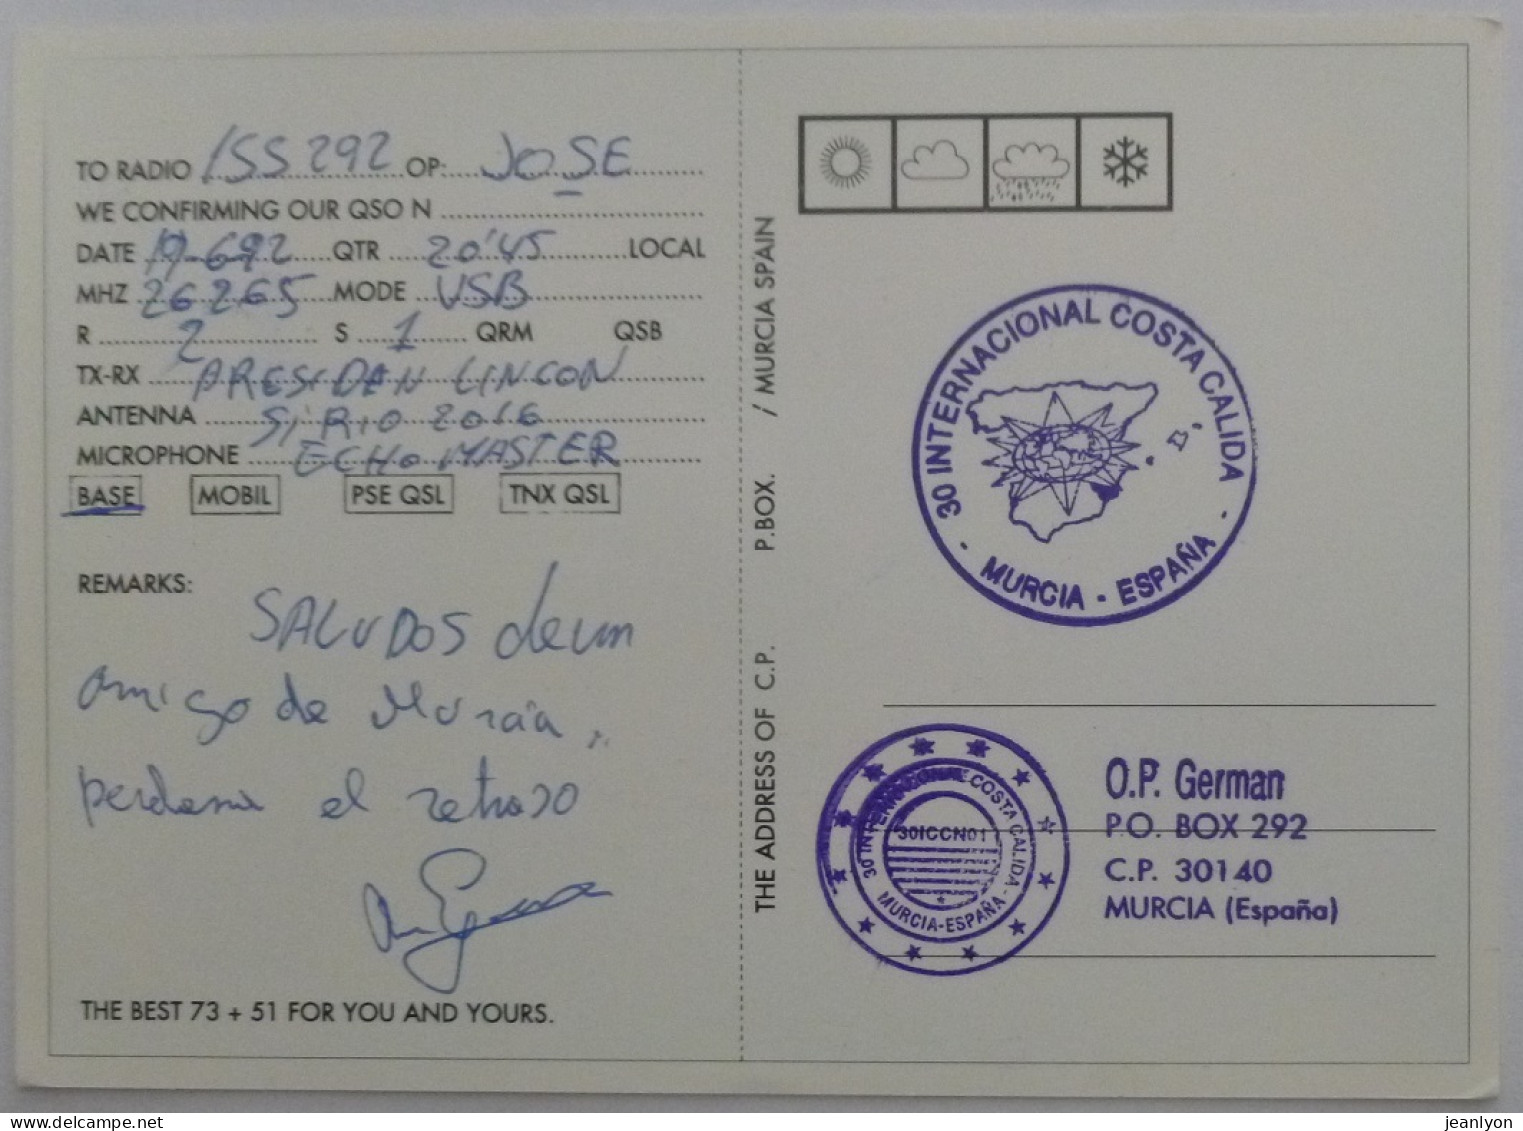 TO RADIO 1SS292 OP: JOSE
WE CONFIRMING OUR QSO N
DATE 19-6-92 QTR 20'45 LOCAL
MHZ 26265 MODE USB
R 2 S 1 QRM QSB
TX-RX PRESIDAN LINCON
ANTENNA SIRIO 2016
MICROPHONE ECHO MASTER
BASE MOBIL PSE QSL TNX QSL
REMARKS:
SALUDOS de un
amigo de Murcia,
perdona el retraso
THE BEST 73 + 51 FOR YOU AND YOURS.
THE ADDRESS OF C.P. P.BOX. / MURCIA SPAIN
30 INTERNACIONAL COSTA CALIDA
- MURCIA - ESPAÑA -
30 INTERNACIONAL COSTA CALIDA
30ICCN01
MURCIA-ESPAÑA-
O.P. German
P.O. BOX 292
C.P. 30140
MURCIA (España)
delcampe.net
jeanlyon